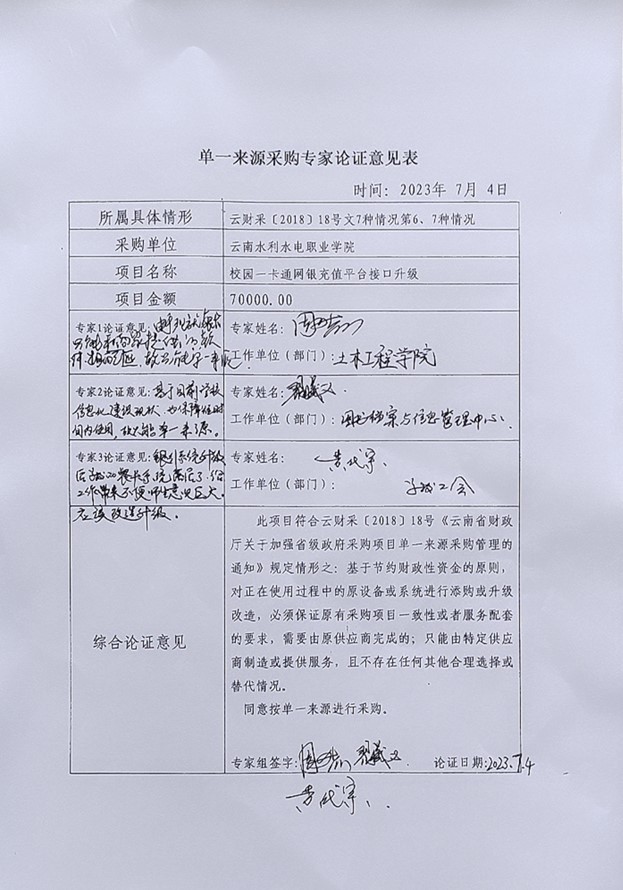 单一来源采购专家论证意见表
时间：2023年 7月 4日
所属具体情形 云财采〔2018〕18号文7种情况第6、7种情况
采购单位 云南水利水电职业学院
项目名称 校园一卡通网银充值平台接口升级
项目金额 70000.00
专家1论证意见：
专家姓名：
工作单位（部门）：土木工程学院
专家2论证意见：基于目前学校
信息化建设现状，为保障短时
间内使用，故只能单一来源。
专家姓名：
工作单位（部门）：图书档案与信息管理中心
专家3论证意见：银行系统升级
后
工作带来不便，师生意见巨大，
应该改造升级。
专家姓名：
工作单位（部门）：
综合论证意见
此项目符合云财采〔2018〕18号《云南省财政
厅关于加强省级政府采购项目单一来源采购管理的
通知》规定情形之：基于节约财政性资金的原则，
对正在使用过程中的原设备或系统进行添购或升级
改造，必须保证原有采购项目一致性或者服务配套
的要求，需要由原供应商完成的；只能由特定供应
商制造或提供服务，且不存在任何其他合理选择或
替代情况。
同意按单一来源进行采购。
专家组签字： 论证日期：2023.7.4